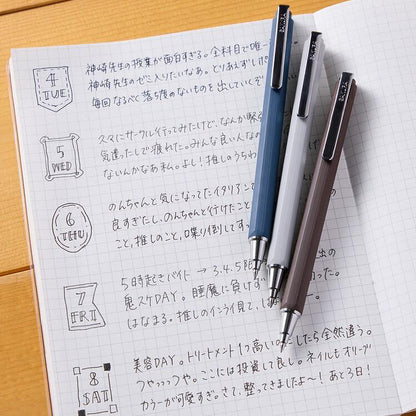 4
TUE
神崎先生の授業が面白すぎる。全科目で唯一
神崎先生のゼミ入りたいなあ。とりあえずレポ
毎回なるべく落ち度のないものを出していくぞ
5
WED
久々にサークル行ってみたけど、なんか緊
気遣ったしで疲れた。みんな良い人なの
ないんかなあ私。よし!推しのうちわ
6
THU
のんちゃんと気になってたイタリアン
良すぎたし、のんちゃんと行けたこと
こと、推しのこと、喋り倒してすっ
7
FRI
5時起きバイト → 3.4.5限 出の
鬼スケDAY。睡魔に負けず った。
はなまる。推しのインライ見て、し
8
SAT
美容DAY。トリートメント1つ高い したら全然違う。
つやっっつや。ここには投資して良し。ネイルもオリーブ
カラーが可愛すぎ。さて、整ってきましたよ〜!あと3日!